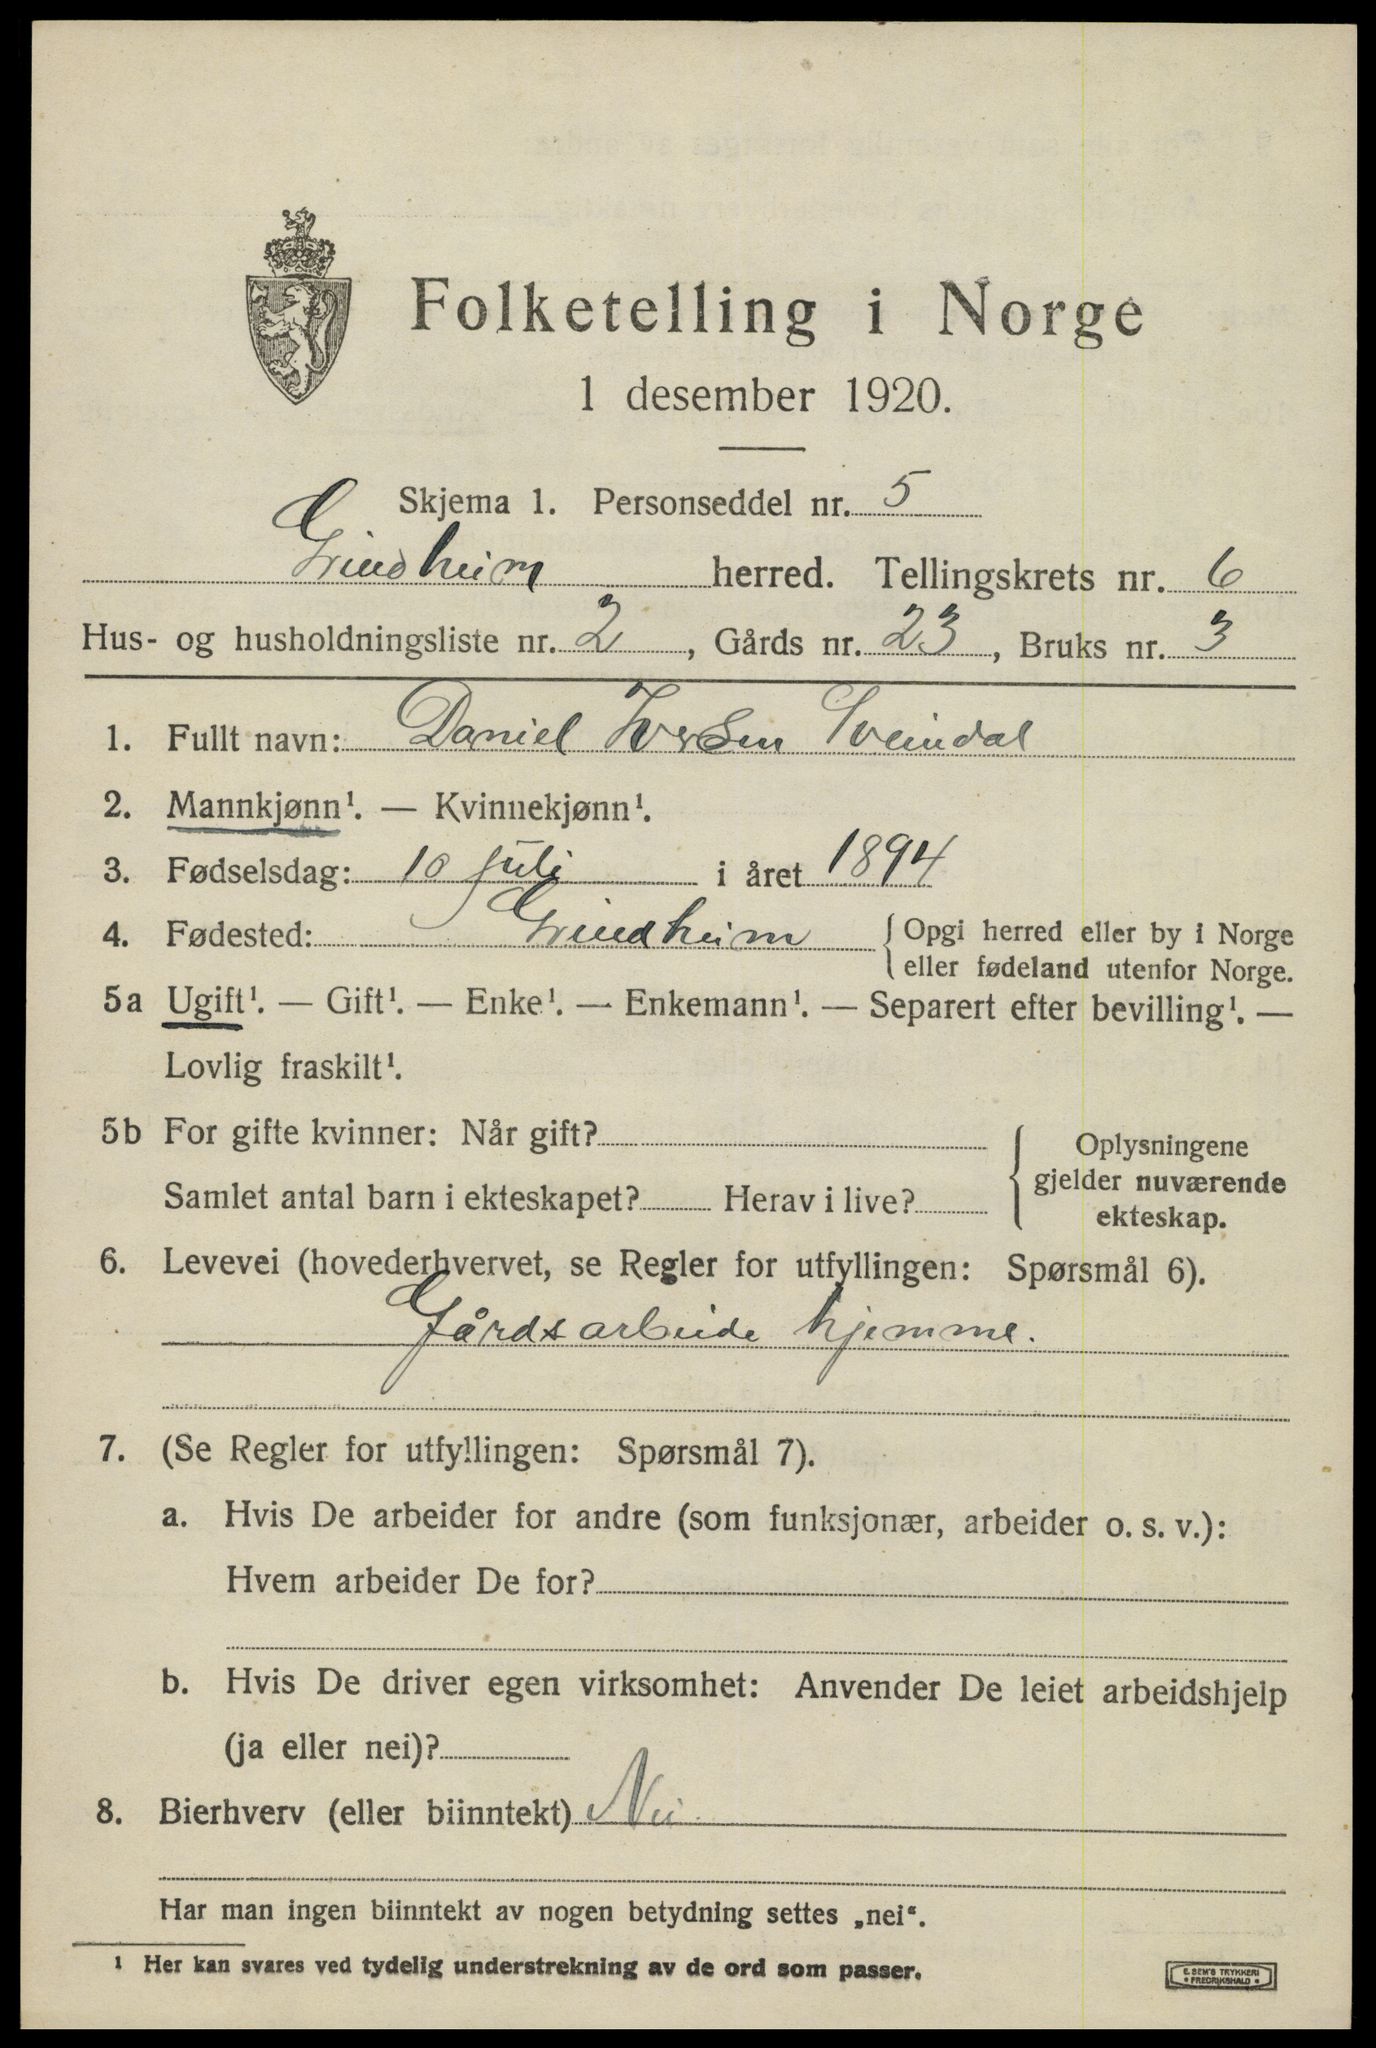 Folketelling i Norge
1 desember 1920.
Skjema 1. Personseddel nr. 5
Grindheim herred. Tellingskrets nr. 6
Hus- og husholdningsliste nr. 2, Gårds nr. 23, Bruks nr. 3
1. Fullt navn: Daniel Iversen Sveindal
2. Mannkjønn¹. — Kvinnekjønn¹.
3. Fødselsdag: 10 juli i året 1894
4. Fødested: Grindheim { Opgi herred eller by i Norge
eller fødeland utenfor Norge.
5a Ugift¹. — Gift¹. — Enke¹. — Enkemann¹. — Separert efter bevilling¹. —
Lovlig fraskilt¹.
5b For gifte kvinner: Når gift?
Samlet antal barn i ekteskapet? Herav i live?
{ Oplysningene
gjelder nuværende
ekteskap.
6. Levevei (hovederhvervet, se Regler for utfyllingen: Spørsmål 6).
Gårdsarbeide hjemme.
7. (Se Regler for utfyllingen: Spørsmål 7).
a. Hvis De arbeider for andre (som funksjonær, arbeider o. s. v.):
Hvem arbeider De for?
b. Hvis De driver egen virksomhet: Anvender De leiet arbeidshjelp
(ja eller nei)?
8. Bierhverv (eller biinntekt) Nei
Har man ingen biinntekt av nogen betydning settes „nei“.
¹ Her kan svares ved tydelig understrekning av de ord som passer.
E. SEM'S TRYKKERI
• FREDRIKSHALD •